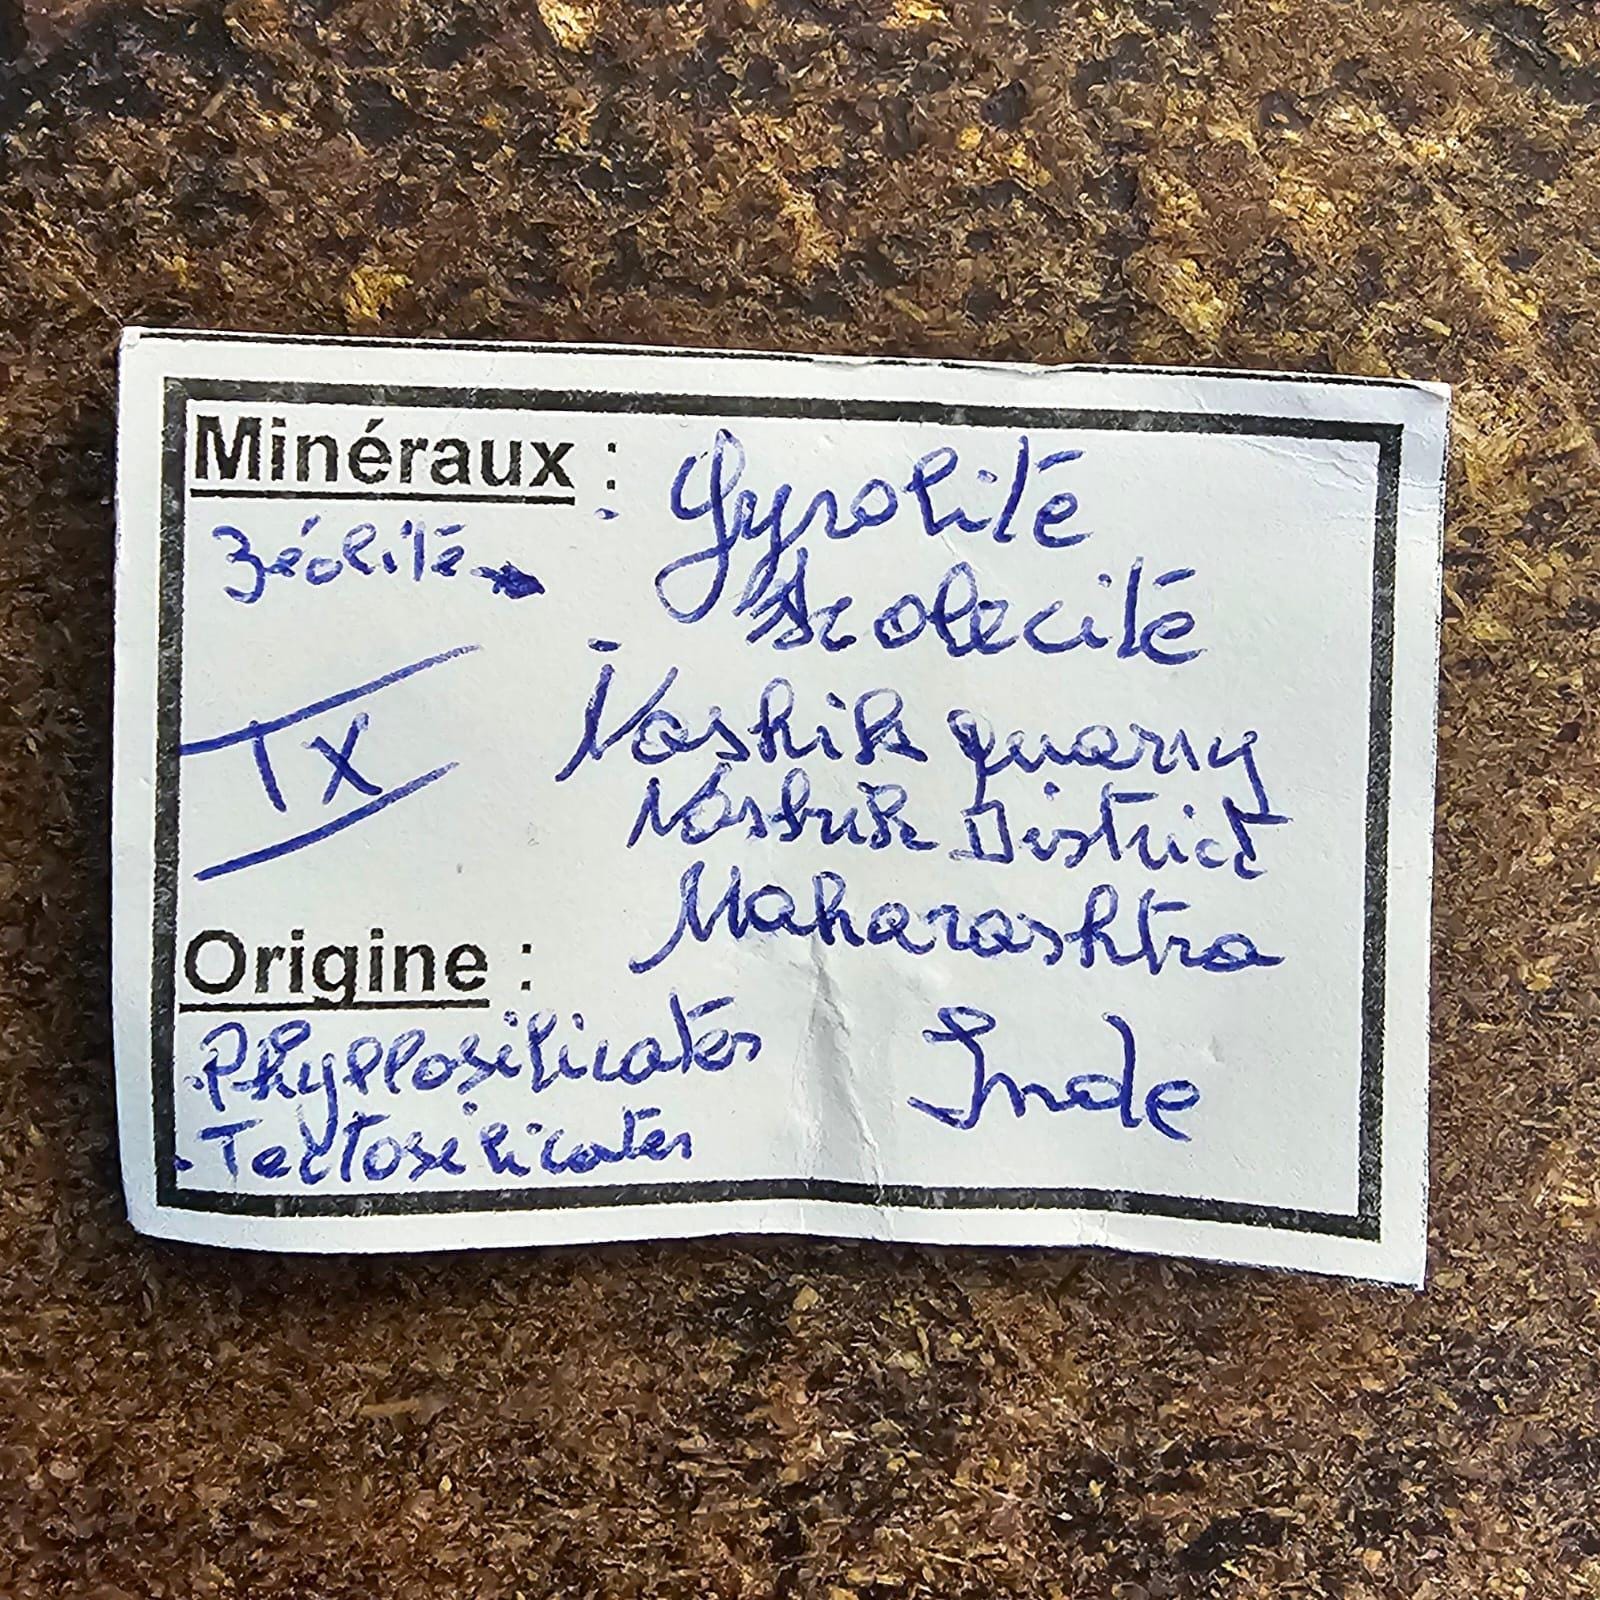 Minéraux : Gyrolite
Zéolite → Scolecite
Nashik quarry
TX
Nashik District
Maharashtra
Origine :
Phyllosilicates
Inde
Tectosilicates